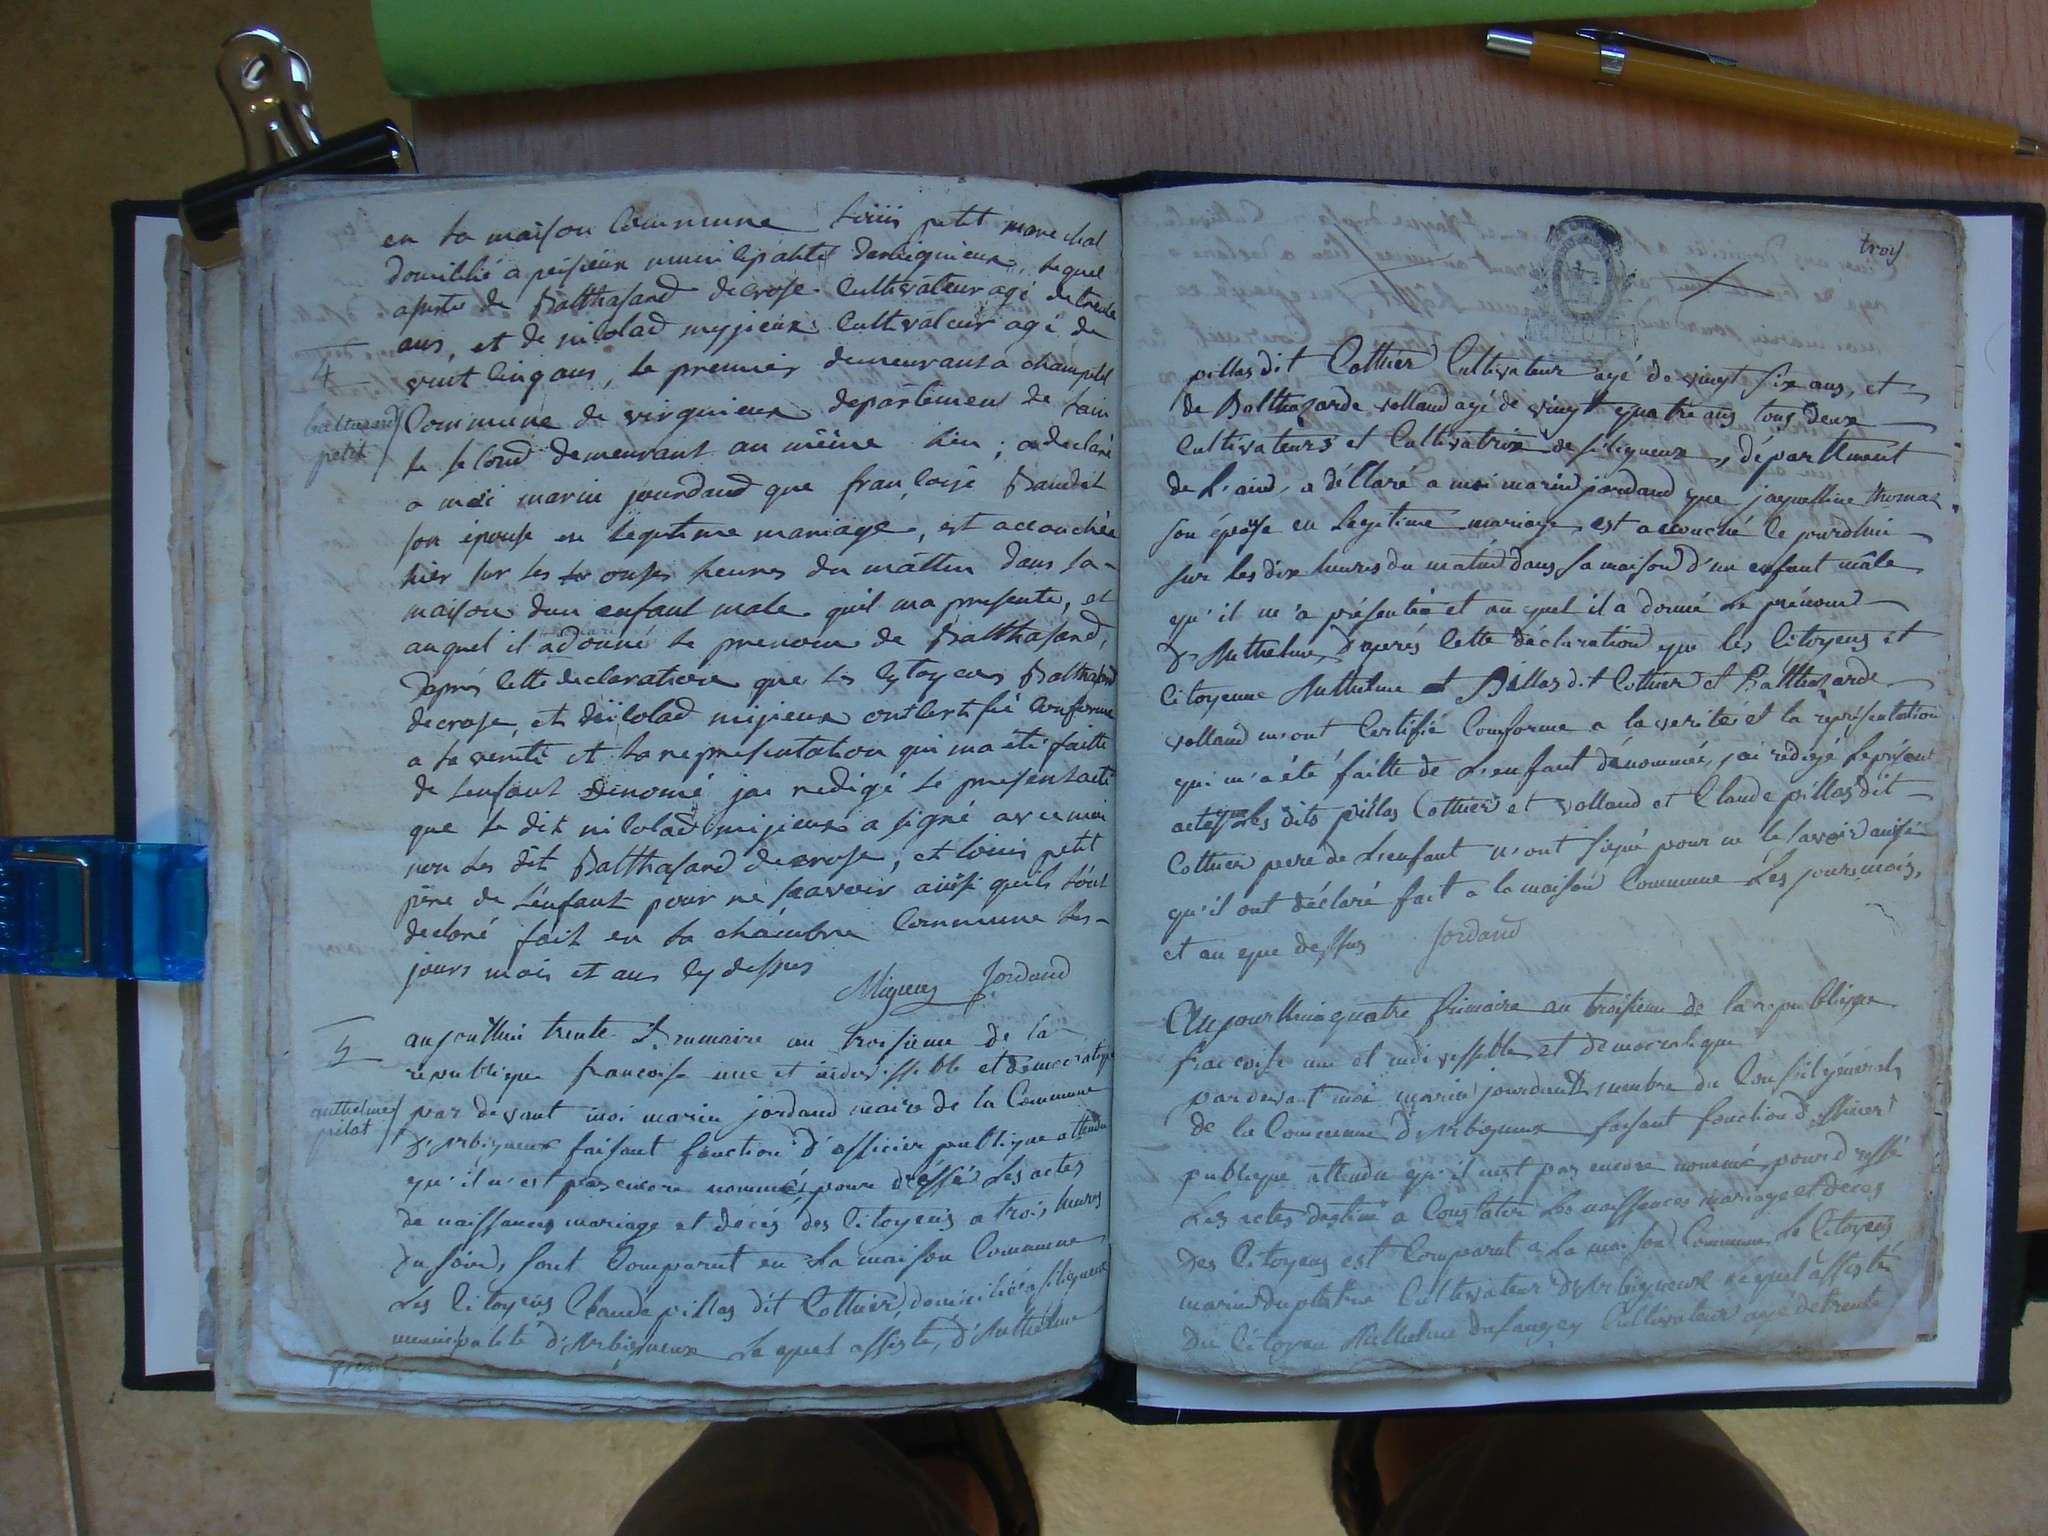 en la maison Commune Louis petit marechal
domicilié a peisieux municipalité derbignieux, lequel
assisté de Balthasard decrose Cultivateur agé de trente
ans, et de nicolad myjieux Cultivateur agé de
4
vint cinq ans, le premier demeurant a champtel
balthazard
petit
Commune de virignieux departement de lain
le second demeurant au même lieu; a declaré
a moi marin jourdand que françoise Baudet
son épouse en legitime mariage, est accouchée
hier sur les onses heures du mattin dans sa
maison dun enfant male quil ma presente, et
auquel il a donné le prenom de Balthasard,
daprés cette declaration que les cytoyens Balthasard
decrose, et nicolad mijieux ont certifié conforme
a la verité et la representation qui ma été faitte
de lenfant denomé jai redigé le present acte
que le dit nicolad mijieux a signé avec moi
non les dit Balthasard decrose, et louis petit
père de lenfant pour ne scavoir ainsi quils l'ont
declaré fait en la chambre Commune les
jours mois et ans cy dessus
Migieux Jordand
5
aujourdhui trente Brumaire an troisieme de la
republique francoise une et indivissible et democratique
anthelme
pilat
par devant moi marin jordand maire de la Commune
d'Arbignieux faisant fonction d'officier publique attendu
qu'il n'est pas encore nommé pour dréssé les actes
de naissances mariage et décés des Citoyens a trois heures
du soir, sont Comparut en la maison Commune
les Citoyens Claude pillas dit Cottier, domicilié a siligneux
municipalité d'Arbignieux lequel assisté, d'Anthelme
troy
pillas dit Cothier Cultivateur agé de vingt six ans, et
de Balthazarde volland agé de vingt quatre ans tous deux
Cultivateurs et Cultivatrix de siligneux, département
de L'ain, a déclaré a moi marin jordand que jaqueline thomas
son épouse en legitime mariage, est accouché ce jourdhui
sur les dix heures du matin dans sa maison d'un enfant mâle
qu'il m'a présenté et au quel il a donné le prénom
d'Anthelme, d'aprés cette déclaration que les Citoyens et
Citoyenne Anthelme Pillas dit Cothier et Balthazarde
volland m'ont Certifié Comforme a la verité et la représentation
qui m'a été faitte de l'enfant dénommé, jai rédigé le présent
acte que les dits pillas Cothier et volland et Claude pillas dit
Cothier pere de l'enfant n'ont signé pour ne le savoir ainsi
qu'il ont déclaré fait a la maison Commune les jours mois,
et an que dessus Jordand
Aujourdhui quatre frimaire an troisieme de la republique
francoise une et indivissible et democratique
pardevant moi marin jourdand membre du Conseil général
de la Commune d'Arbignieux faisant fonction d'officier
publique attendu qu'il n'est pas encore nommé pour dressé
les actes destiné a Constater les naissances mariage et deces
des Citoyens est Comparut a la maison Commune le Citoyen
marin duplatre Cultivateur d'Arbignieux lequel assisté
du Citoyen Anthelme Cultivateur agé de trente